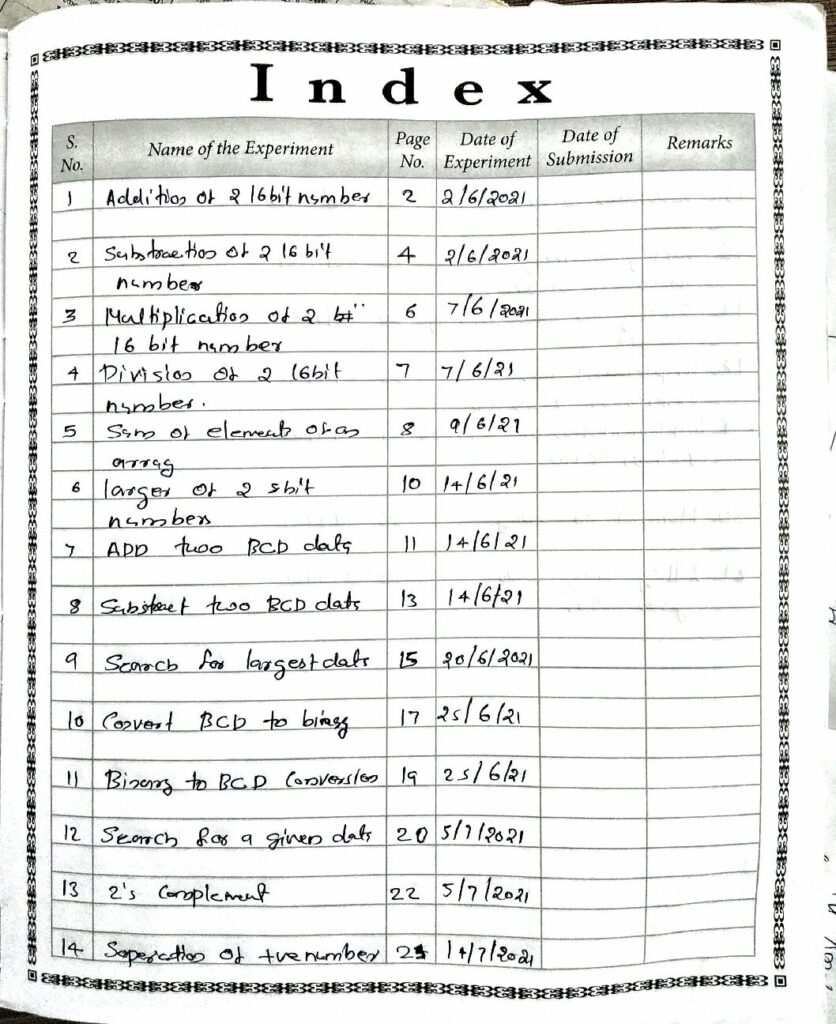 Index
S. No. Name of the Experiment Page No. Date of Experiment Date of Submission Remarks
1 Addition of 2 16bit number 2 2/6/2021
2 Substraction of 2 16 bit 4 2/6/2021
number
3 Multiplication of 2 6 7/6/2021
16 bit number
4 Division of 2 16bit 7 7/6/21
number.
5 Sum of elements of an 8 9/6/21
array
6 larger of 2 8bit 10 14/6/21
numbers
7 ADD two BCD data 11 14/6/21
8 Substract two BCD data 13 14/6/21
9 Search for largest data 15 20/6/2021
10 Convert BCD to binary 17 25/6/21
11 Binary to BCD Conversion 19 25/6/21
12 Search for a given data 20 5/7/2021
13 2's Complement 22 5/7/2021
14 Seperation of +ve number 14/7/2021